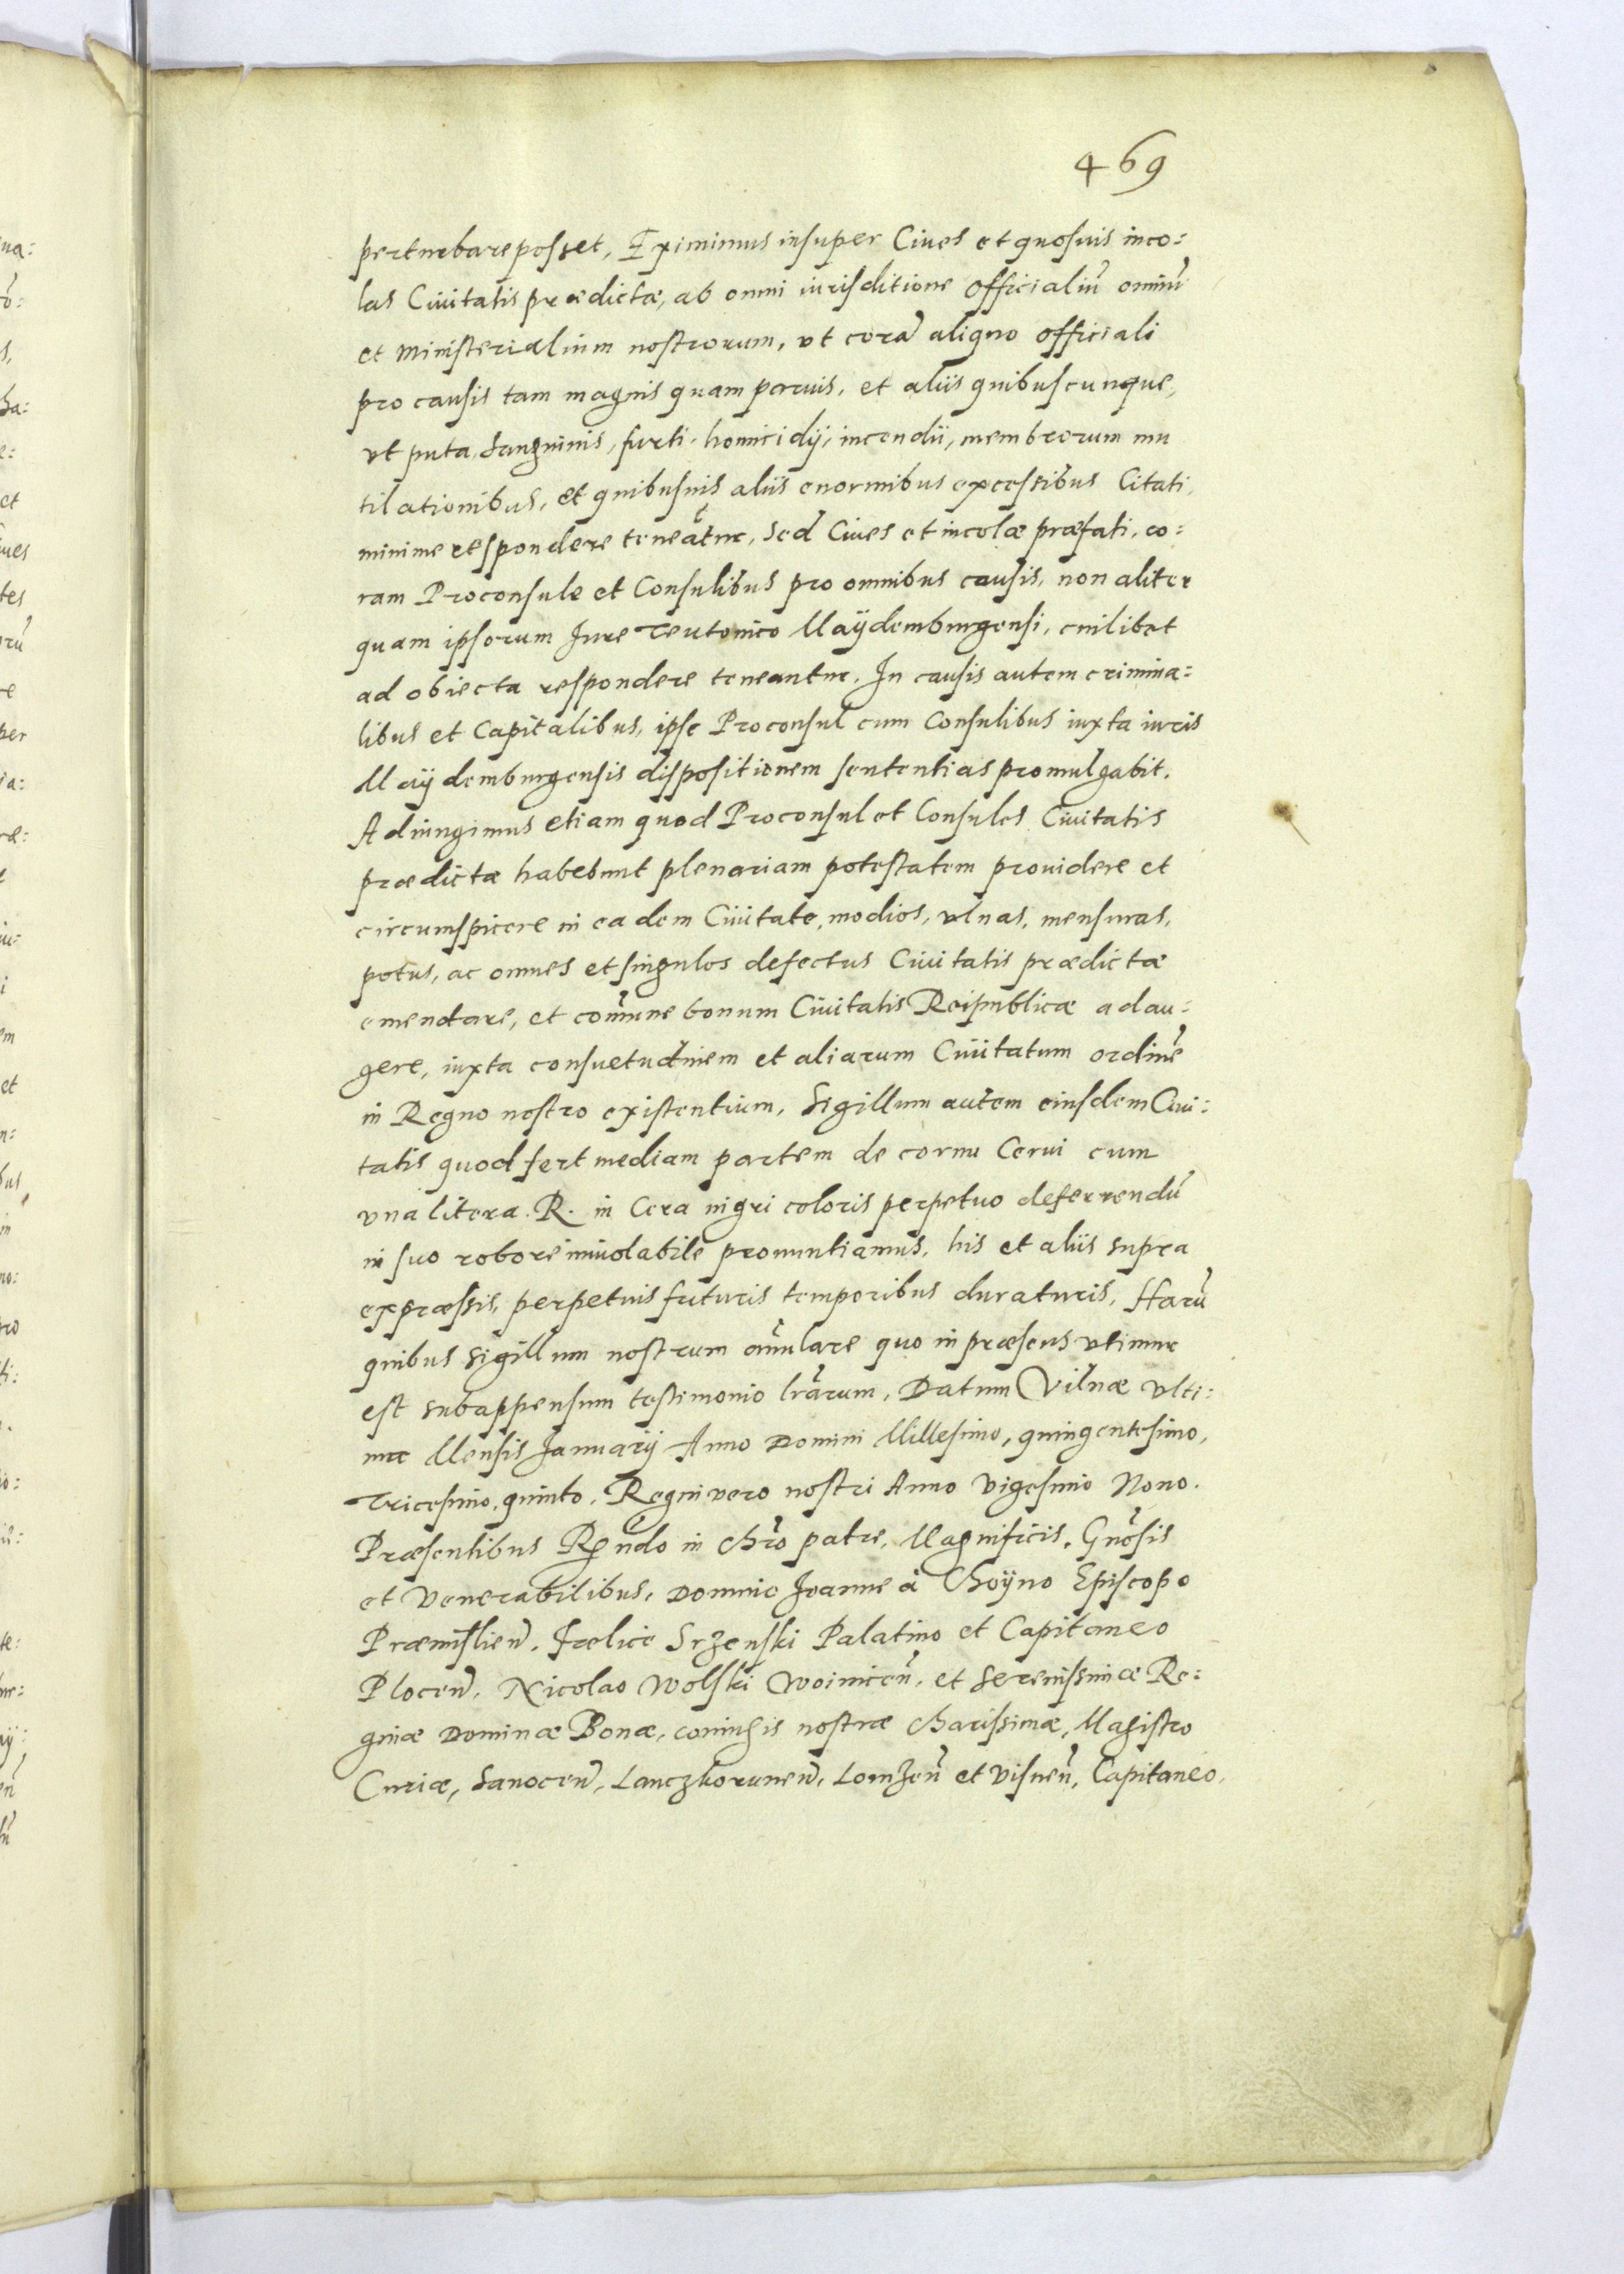 469
perturbare posset, Eximimus insuper Ciues et quosuis inco:
las Ciuitatis prædictæ, ab omni iurisditione Officialiũ omniũ
et Ministerialium nostrorum, vt corã aliquo Officiali
pro causis tam magnis quam paruis, et aliis quibuscunque,
vt puta, Sanguinis, furti, homicidÿ, incendii, membrorum mu
tilationibus, et quibusuis aliis enormibus excessibus Citati,
minime respondere teneãtur, Sed Ciues et incolæ præfati, co:
ram Proconsule et Consulibus pro omnibus causis, non aliter
quam ipsorum Jure Teutonico Maÿdemburgensi, cuilibet
ad obiecta respondere teneantur. In causis autem crimina:
libus et Capitalibus, ipse Proconsul cum Consulibus iuxta iuris
Maÿdemburgensis dispositionem sententias promulgabit.
Adiungimus etiam quod Proconsul et Consules Ciuitatis
prædictæ habebunt plenariam potestatem prouidere et
circumspicere in eadem Ciuitate, modios, vlnas, mensuras,
potus, ac omnes et singulos defectus Ciuitatis prædictæ
emendare, et com̃une bonum Ciuitatis Reipublicæ adau:
gere, iuxta consuetudinem et aliarum Ciuitatum ordinẽ
in Regno nostro existentium, Sigillum autem eiusdem Ciui:
tatis quod fert mediam partem de cornu Cerui cum
vna litera. R. in Cera nigri coloris perpetuo deferrendũ
in suo robore inuiolabile pronuntiamus, his et aliis supra
expræssis, perpetuis futuris temporibus duraturis, Harũ
quibus Sigillum nostrum añulare quo in præsens vtimur
est subappensum testimonio lr̃arum, Datum Vilnæ vlti:
ma Mensis Januarÿ Anno Domini Millesimo, quingentesimo,
Tricesimo, quinto, Regni vero nostri Anno Vigesimo Nono.
Præsentibus Rẽndo in Chr̃o patre, Magnificis, Gñosis
et Venerabilibus, Domino Joanne à Choÿno Episcopo
Præmislieñ, Fælice Srzenski Palatino et Capitaneo
Ploceñ, Nicolao Wolski Woiniceñ, et Serenissimæ Re:
ginæ Dominæ Bonæ, coniugis nostræ charissimæ, Magistro
Curiæ, Sanoceñ, Lanczkoruneñ, Lomzeñ et Visneñ, Capitaneo,